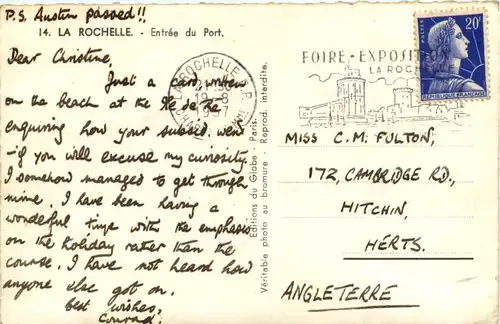 P.S. Austin passed!!
14. LA ROCHELLE. - Entrée du Port.
Dear Christine,
Just a card, written
on the beach at the Ile de Ré,
enquiring how your subsid. went
- if you will excuse my curiosity.
I somehow managed to get through
mine. I have been having a
wonderful time with the emphasis
on the holiday rather than the
course. I have not heard how
anyone else got on.
best wishes,
Conrad.
Editions du Globe - Paris.
Véritable photo au bromure - Reproduction interdite.
LA ROCHELLE R.P.
FOIRE-EXPOSIT
LA ROCH
POSTES
20F
REPUBLIQUE FRANÇAISE
MISS C.M. FULTON,
172, CAMBRIDGE RD.,
HITCHIN,
HERTS.
ANGLETERRE